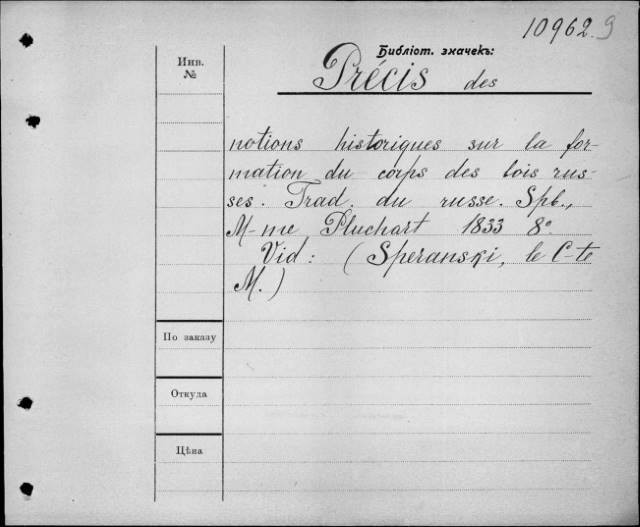 10962.9
Библіот. значекъ:
Инв.
№
Précis des
notions historiques sur la for-
mation du corps des lois rus-
ses. Trad. du russe. Spb.,
M-me Pluchart 1833 8º
Vid: (Speranski, le C-te
M.)
По заказу
Откуда
Цѣна